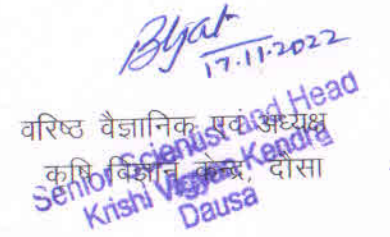 17.11.2022
वरिष्ठ वैज्ञानिक एवं अध्यक्ष
कृषि विज्ञान केन्द्र, दौसा
Senior Scientist and Head
Krishi Vigyan Kendra
Dausa